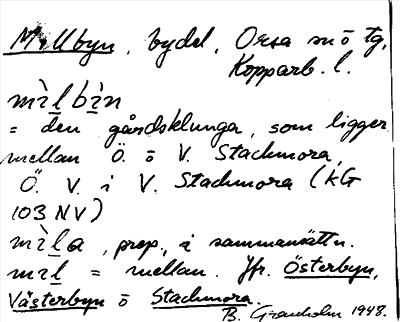 Millbyn, bydel, Orsa sn ö tg,
Kopparb. l.
mìlbìn
= den gårdsklunga, som ligger
mellan Ö. ö V. Stackmora,
Ö. V. i V. Stackmora (KG
103 NV)
mìla, prep, i sammansättn.
mɪl = mellan. Jfr. Österbyn,
Västerbyn ö Stackmora.
B. Granholm 1948.